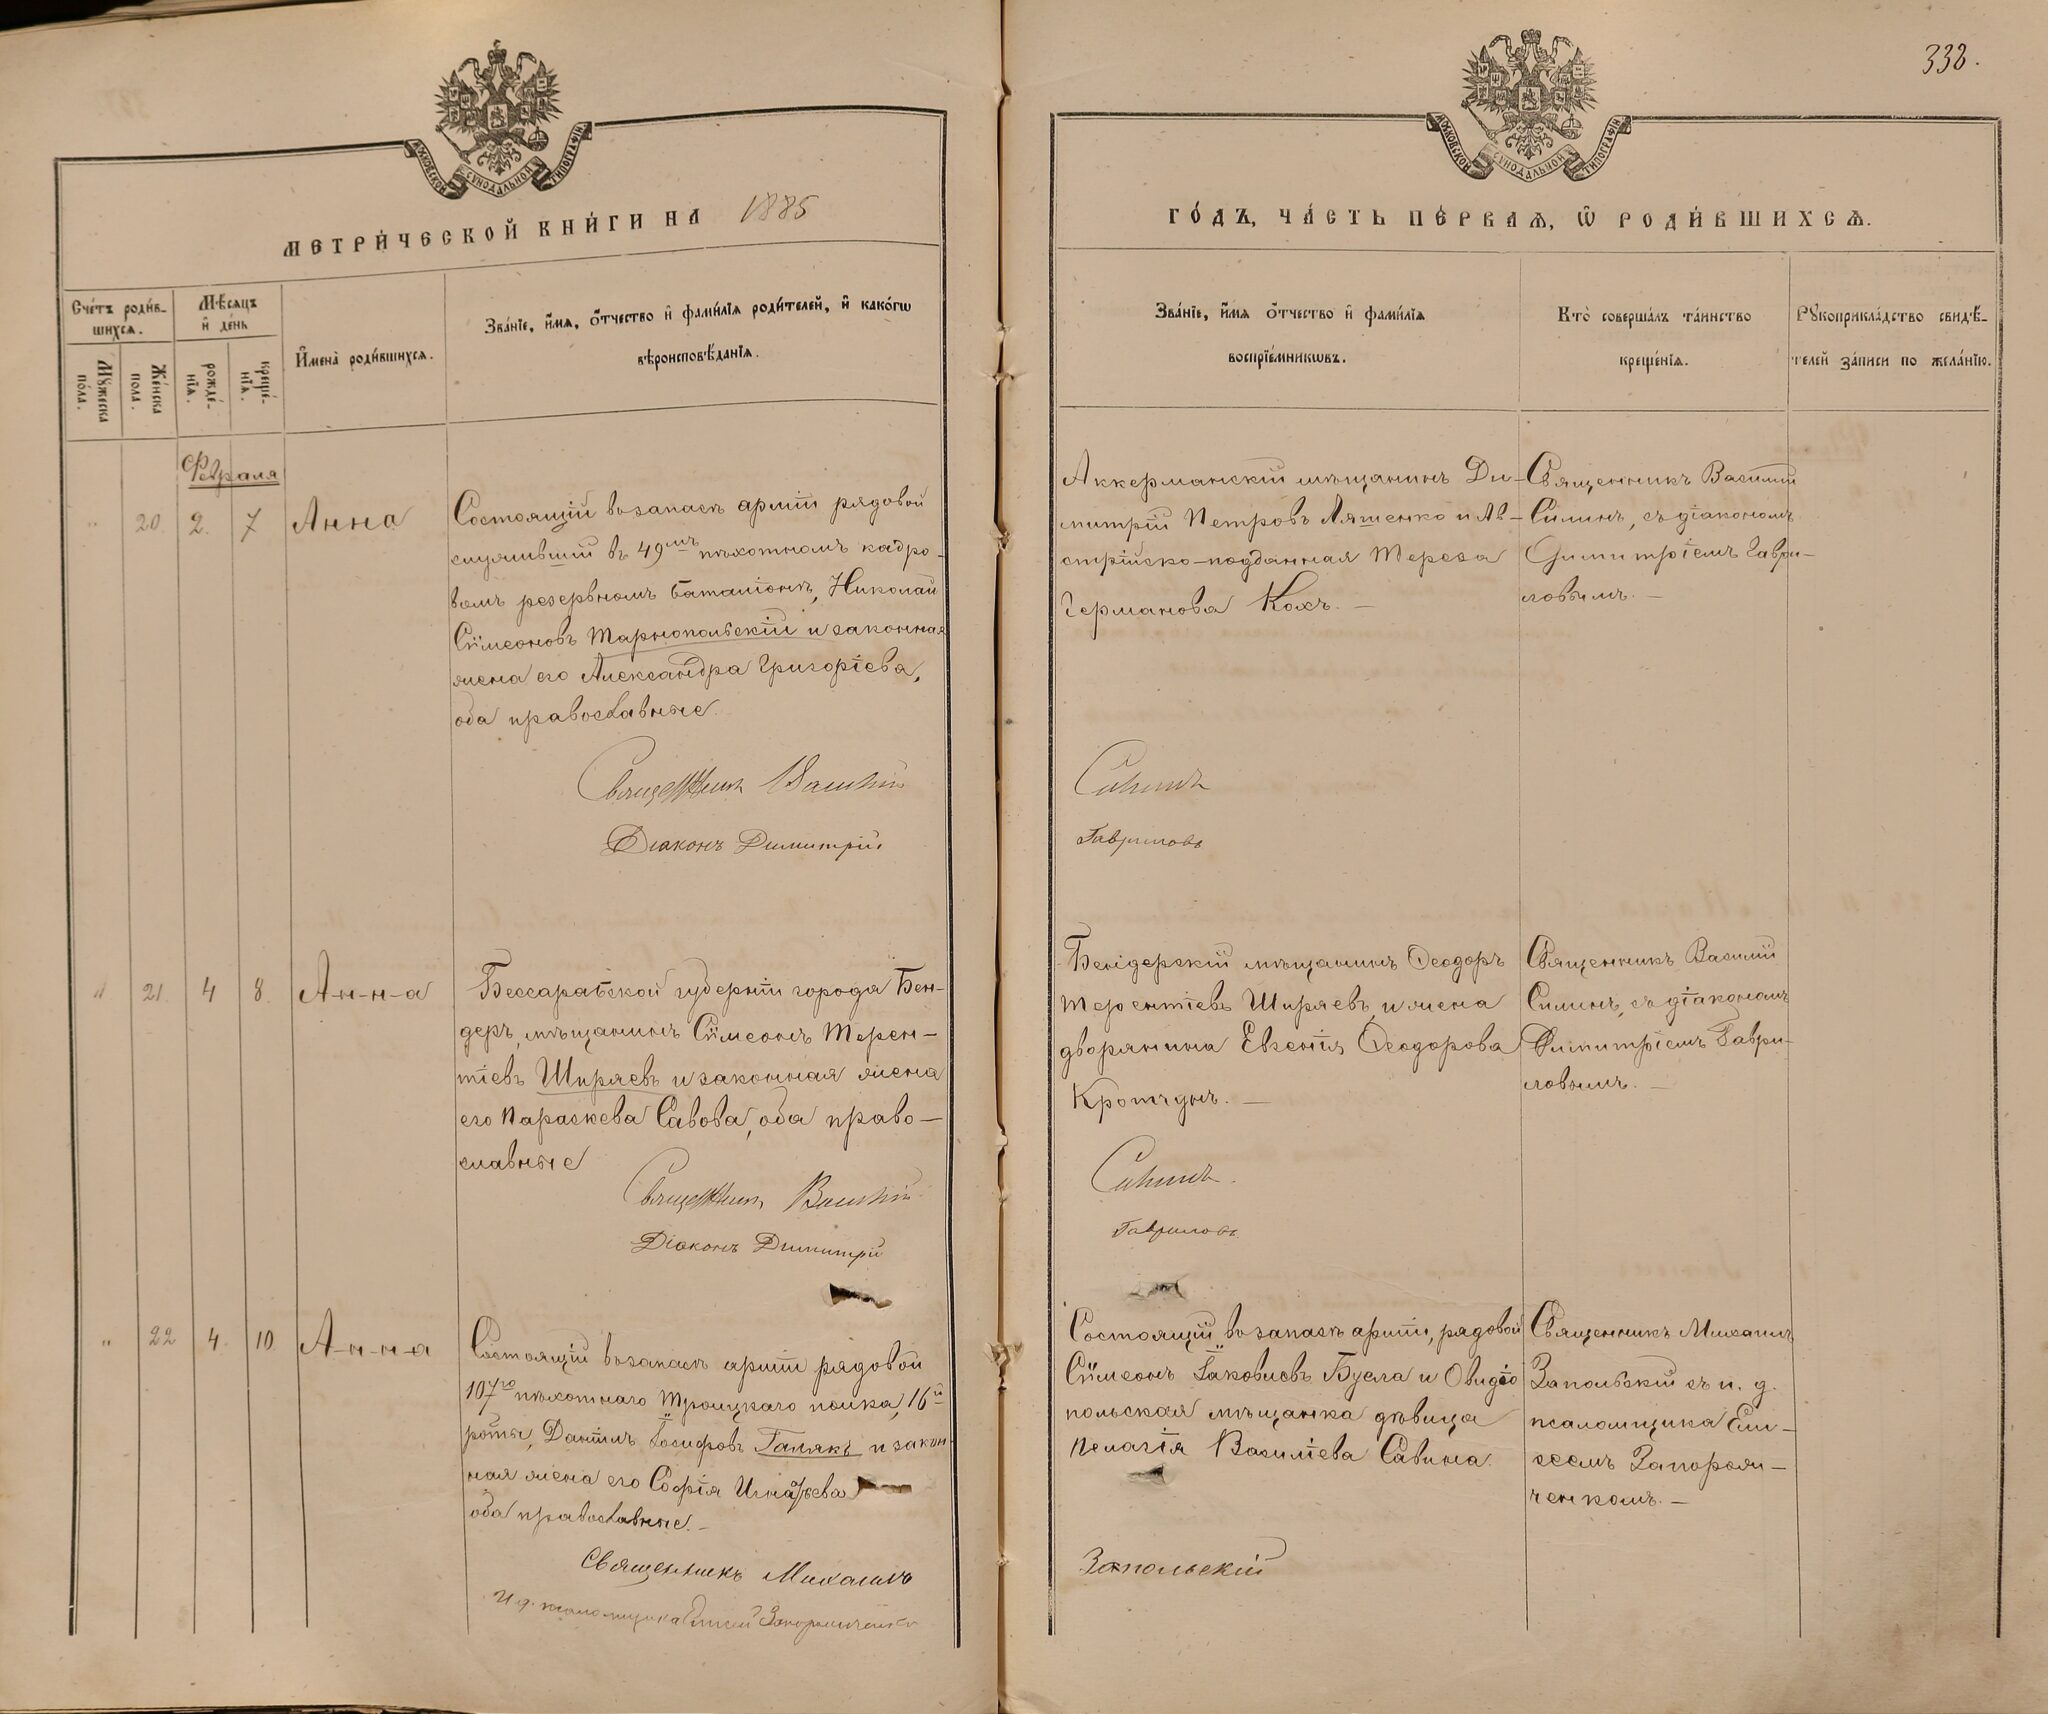 338.
МОСКОВСКОЙ СУНОДАЛЬНОЙ ТИПОГРАФІИ
МОСКОВСКОЙ СУНОДАЛЬНОЙ ТИПОГРАФІИ
МЕТРИ́ЧЕСКОЙ КНИ́ГИ НА 1885
ГО́ДЪ, ЧА́СТЬ ПЕ́РВАѦ, Ѿ РОДИ́ВШИХСѦ.
Сче́тъ роди́в-
шихсѧ.
Мѣ́сѧцъ
и҆ де́нь
И҆мена̀ роди́вшихсѧ.
Зва́нїе, и҆́мѧ, ѻ҆́тчество и҆ фами́лїѧ роди́телей, и҆ како́гѡ
вѣроисповѣ́данїѧ.
Мꙋ́жеска
по́ла.
Же́нска
пола.
рожде́-
нїѧ.
креще́-
нїѧ.
Зва́нїе, и҆́мѧ ѻ҆́тчество и҆ фами́лїѧ
воспрїе́мникѡвъ.
Кто̀ соверша́лъ та́инство
креще́нїѧ.
Рꙋкоприкла́дство свидѣ́-
телей за́писи по жела́нїю.
Февраля
" 20. 2. 7 Анна
Состоящій въ запасѣ арміи рядовой
служившій въ 49мъ пѣхотномъ кадро-
вомъ резервномъ баталіонѣ, Николай
Сѷмеоновъ Тарнопольскій и законная
жена его Александра Григоріева,
оба православные.
Священникъ Василій
Діаконъ Димитрій
Аккерманскій мѣщанинъ Ди-
митрій Петровъ Ляшенко и Ав-
стрійско-подданная Тереза
Германова Кохъ. —
Силинъ
Гавриловъ
Священникъ Василій
Силинъ, съ діакономъ
Димитріемъ Гаври-
ловымъ. —
" 21. 4 8. Анна
Бессарабской губерніи города Бен-
деръ, мѣщанинъ Сѷмеонъ Терен-
тіевъ Ширяевъ и законная жена
его Параскева Савова, оба право-
славные
Священникъ Василій
Діаконъ Димитрій
Бендерскій мѣщанинъ Ѳеодоръ
Терентіевъ Ширяевъ и жена
дворянина Евгенія Ѳеодорова
Кротчунъ. —
Силинъ.
Гавриловъ
Священникъ Василій
Силинъ, съ діакономъ
Димитріемъ Гаври-
ловымъ. —
" 22 4. 10. Анна
Состоящій въ запасѣ арміи рядовой
107го пѣхотнаго Троицкаго полка, 16й
роты, Даніилъ Іосифовъ Галякъ и закон-
ная жена его Софія Игнатьева
оба православные. —
Священникъ Михаилъ
И. д. псаломщика Елисей Запорожченко
Состоящій въ запасѣ арміи, рядовой
Сѷмеонъ Іаковлевъ Бусла и Овидіо
польская мѣщанка дѣвица
Пелагія Василіева Савина.
Запольскій
Священникъ Михаилъ
Запольскій съ и. д.
псаломщика Ели-
сеемъ Запорож-
ченкомъ. —